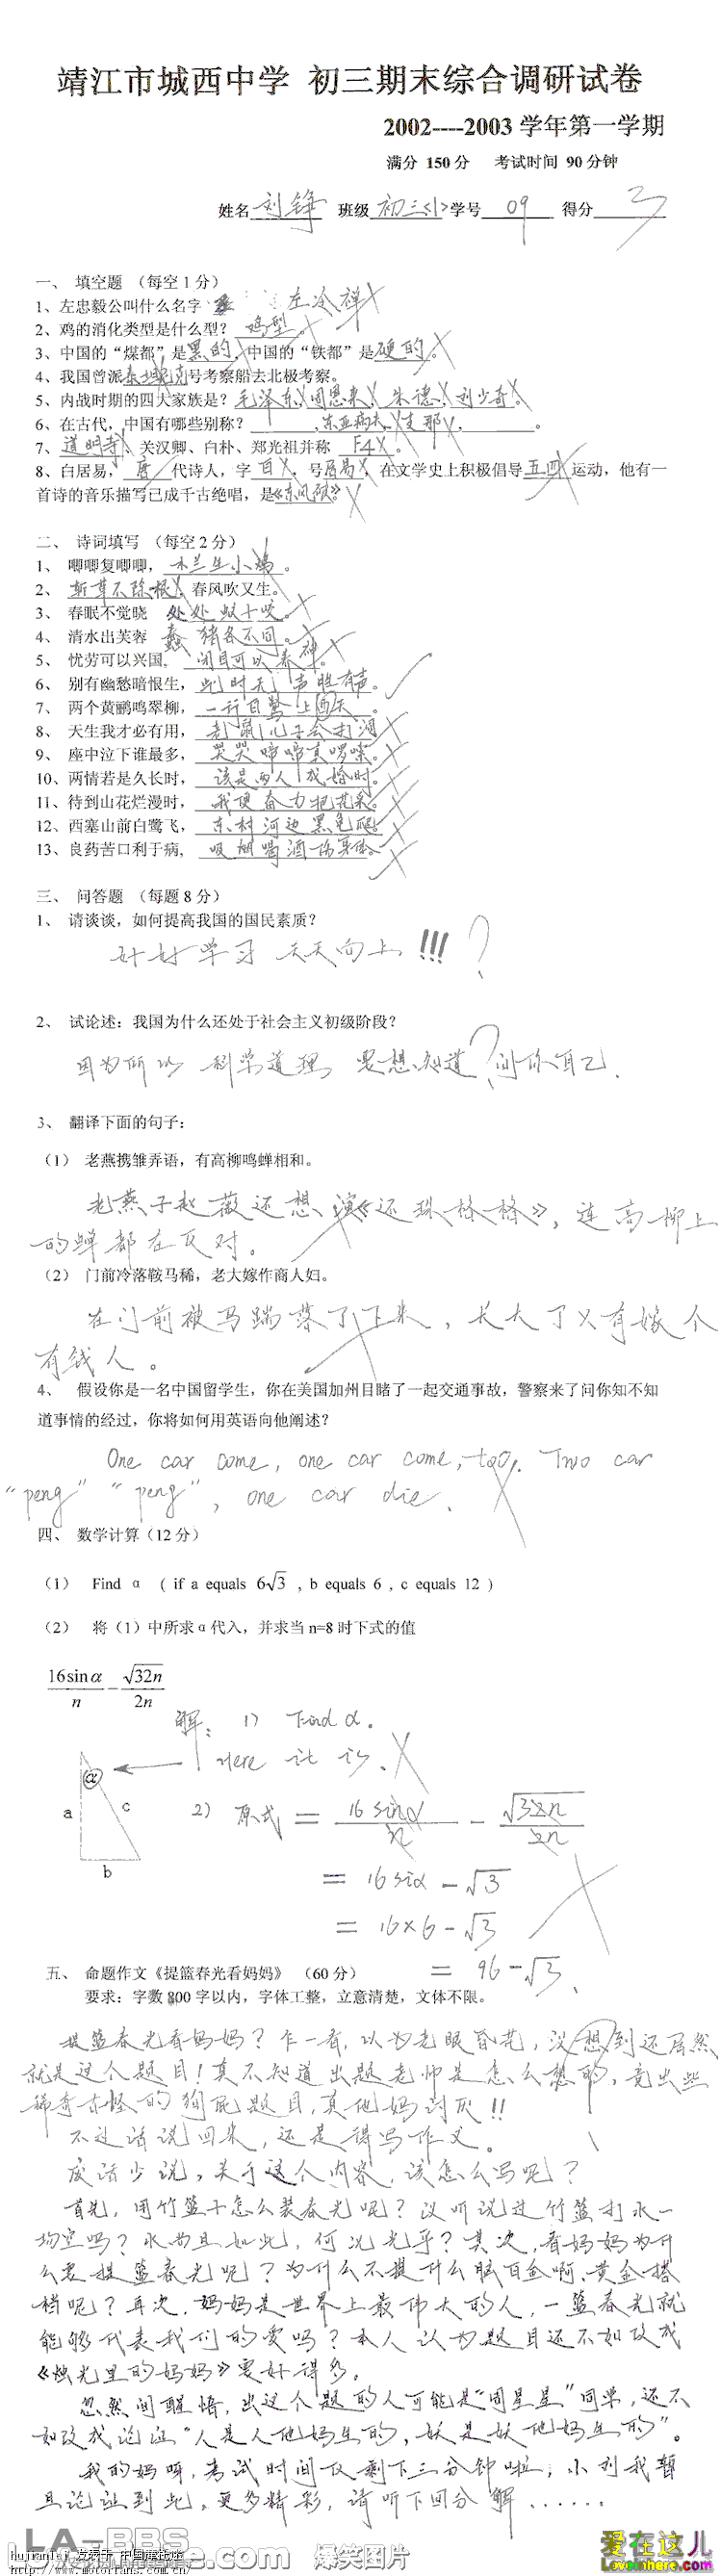 靖江市城西中学 初三期末综合调研试卷
2002----2003 学年第一学期
满分 150 分 考试时间 90 分钟
姓名 刘铮 班级 初三<1> 学号 09 得分 3
一、 填空题 （每空 1 分）
1、左忠毅公叫什么名字 左冷禅
2、鸡的消化类型是什么型？ 鸡型 。
3、中国的“煤都”是黑的，中国的“铁都”是硬的。
4、我国曾派泰坦尼克号考察船去北极考察。
5、内战时期的四大家族是？毛泽东，周恩来，朱德，刘少奇。
6、在古代，中国有哪些别称？ ，东亚病夫，支那， 。
7、道明寺、关汉卿、白朴、郑光祖并称 F4 。
8、白居易， 唐 代诗人，字 白 ，号居易，在文学史上积极倡导五四运动，他有一
首诗的音乐描写已成千古绝唱，是《东风破》
二、 诗词填写 （每空 2 分）
1、 唧唧复唧唧，木兰生小鸡。
2、 斩草不除根，春风吹又生。
3、 春眠不觉晓 处处蚊子咬
4、 清水出芙蓉 猪各不同。
5、 忧劳可以兴国， 闭目可以养神。
6、 别有幽愁暗恨生，此时无声胜有声。
7、 两个黄鹂鸣翠柳，一行白鹭上西天。
8、 天生我才必有用，老鼠儿子会打洞
9、 座中泣下谁最多，哭哭啼啼真啰嗦。
10、两情若是久长时，该是两人成婚时。
11、待到山花烂漫时，我便奋力把花采。
12、西塞山前白鹭飞，东村河边黑龟爬。
13、良药苦口利于病，吸烟喝酒伤身体。
三、 问答题 （每题 8 分）
1、 请谈谈，如何提高我国的国民素质？
好好学习 天天向上!!! ?
2、 试论述：我国为什么还处于社会主义初级阶段？
因为所以 科学道理 要想知道 ? 问你自己.
3、 翻译下面的句子：
（1） 老燕携雏弄语，有高柳鸣蝉相和。
老燕子赵薇还想演《还珠格格》，连高柳上
的蝉都在反对。
（2） 门前冷落鞍马稀，老大嫁作商人妇。
在门前被马踹落了下来，长大了又有嫁个
有钱人。
4、 假设你是一名中国留学生，你在美国加州目睹了一起交通事故，警察来了问你知不知
道事情的经过，你将如何用英语向他阐述？
One car come, one car come, too. Two car
“peng” “peng”, one car die.
四、 数学计算（12 分）
（1） Find α ( if a equals 6√3 , b equals 6 , c equals 12 )
（2） 将（1）中所求α代入，并求当 n=8 时下式的值
16sinα/n − √32n/2n
解： 1） Find α.
Here it is.
a α c b
2） 原式 = 16 sinα/n − √32n/2n
= 16 siα − √3
= 16×6−√3
= 96−√3
五、 命题作文《提篮春光看妈妈》 （60 分）
要求：字数 800 字以内，字体工整，立意清楚，文体不限。
提篮春光看妈妈？乍一看，以为老眼昏花，没想到还居然
就是这个题目！真不知道出题老师是怎么想的，竟出些
稀奇古怪的狗屁题目，真他妈讨厌!!
不过话说回来，还是得写作文。
废话少说，关于这个内容，该怎么写呢？
首先，用竹篮子怎么装春光呢？没听说过竹篮打水一
场空吗？水尚且如此，何况光乎？其次，看妈妈为什
么要提篮春光呢？为什么不提什么脑白金啊，黄金搭
档呢？再次，妈妈是世界上最伟大的人，一篮春光就
能够代表我们的爱吗？本人认为题目还不如改成
《烛光里的妈妈》要好得多。
忽然间醒悟，出这个题的人可能是“周星星”同学，还不
如改成论证“人是人他妈生的，妖是妖他妈生的”。
我的妈呀，考试时间仅剩下三分钟啦，小刘我暂
且论证到此，更多精彩，请听下回分解......
LA-BBS
hujianlei 发表于 中国摩托迷
www.motorfans.com.cn
Lovewinhere.com 爆笑图片
爱在这儿
Lovewinhere.com